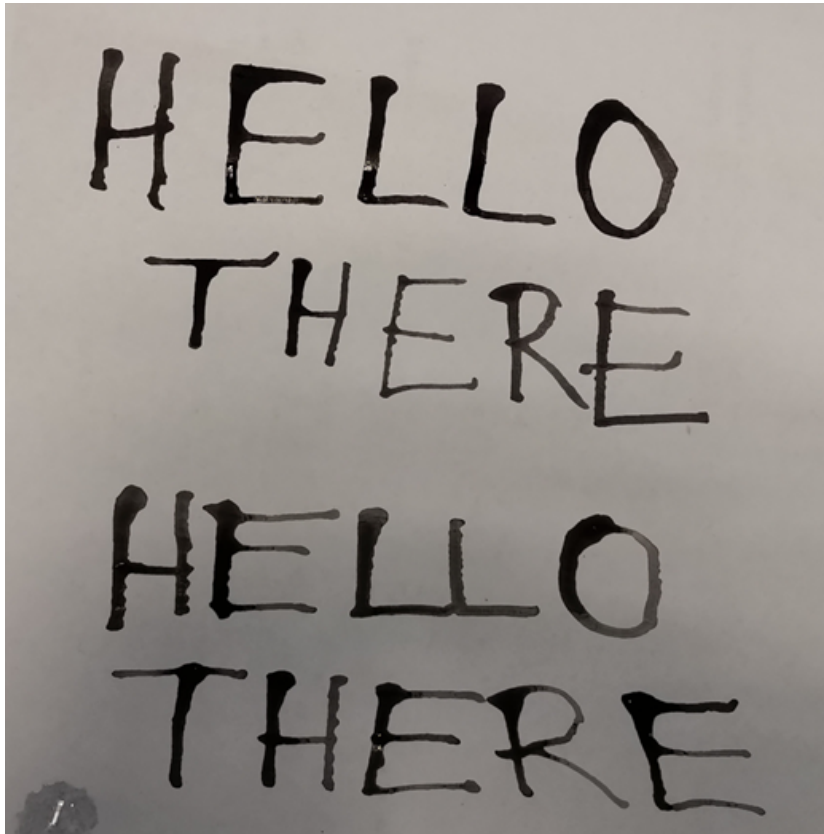 HELLO
THERE
HELLO
THERE